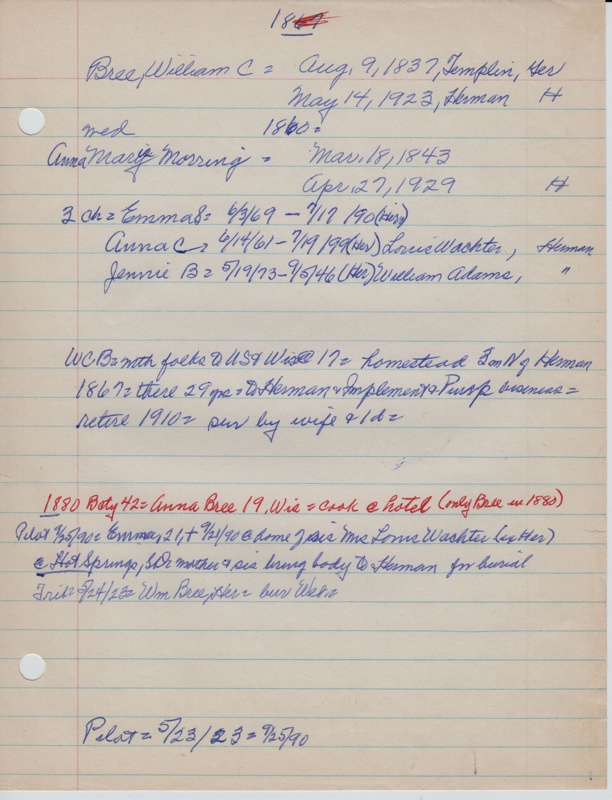 1867
Bree, William C = Aug. 9, 1837, Templin, Ger
May 14, 1923, Herman H
med 1860 =
Anna Maria Morring = Mar. 18, 1843
Apr. 27, 1929 H
3 ch = Emma S = 6/3/69 - 9/17/90 (Her)
Anna C = 6/14/61 - 7/19/99 (Her) Louis Wachter, Herman
Jennie B = 5/19/73 - 9/5/46 (Her) William Adams, "
WCB = with folks to US & Wis @ 17 = homestead 3 m N of Herman
1867 = there 29 yrs = to Herman & Implement & Pump business =
retire 1910 = sur by wife & 1 d =
1880 Boty 42 = Anna Bree 19, Wis = cook @ hotel (only Bree in 1880)
Pilot 9/25/90 = Emma, 21, + 9/21/90 @ home of sis Mrs Louis Wachter (ex Her)
@ Hot Springs, SD = mother & sis bring body to Herman for burial
Trib = 5/24/23 = Wm Bree, Her = bur Wed =
Pilot = 5/23/23 = 9/25/90